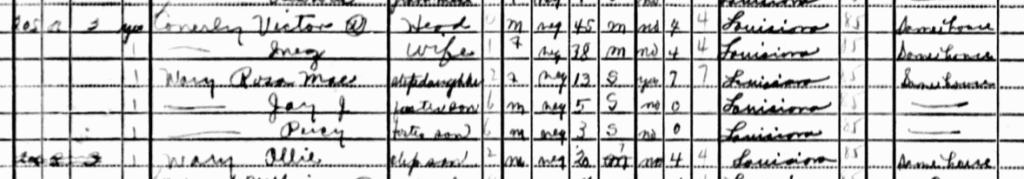 205 R 3 yes Conerly Victor Head 0 m neg 45 m no 4 4 Louisiana 85 Same house
Inez Wife 1 7 neg 38 m no 4 4 Louisiana 85 Same house
1 Wary Rosa Mae stepdaughter 2 7 neg 13 S yes 7 7 Louisiana 85 Same house
1 —— Jay J foster son 6 m neg 5 S no 0 Louisiana 85 ——
1 —— Percy foster son 6 m neg 3 S no 0 Louisiana 85 ——
3 1 Wary Ollie step son 2 m neg 20 m 7 no 4 4 Louisiana 85 Same house